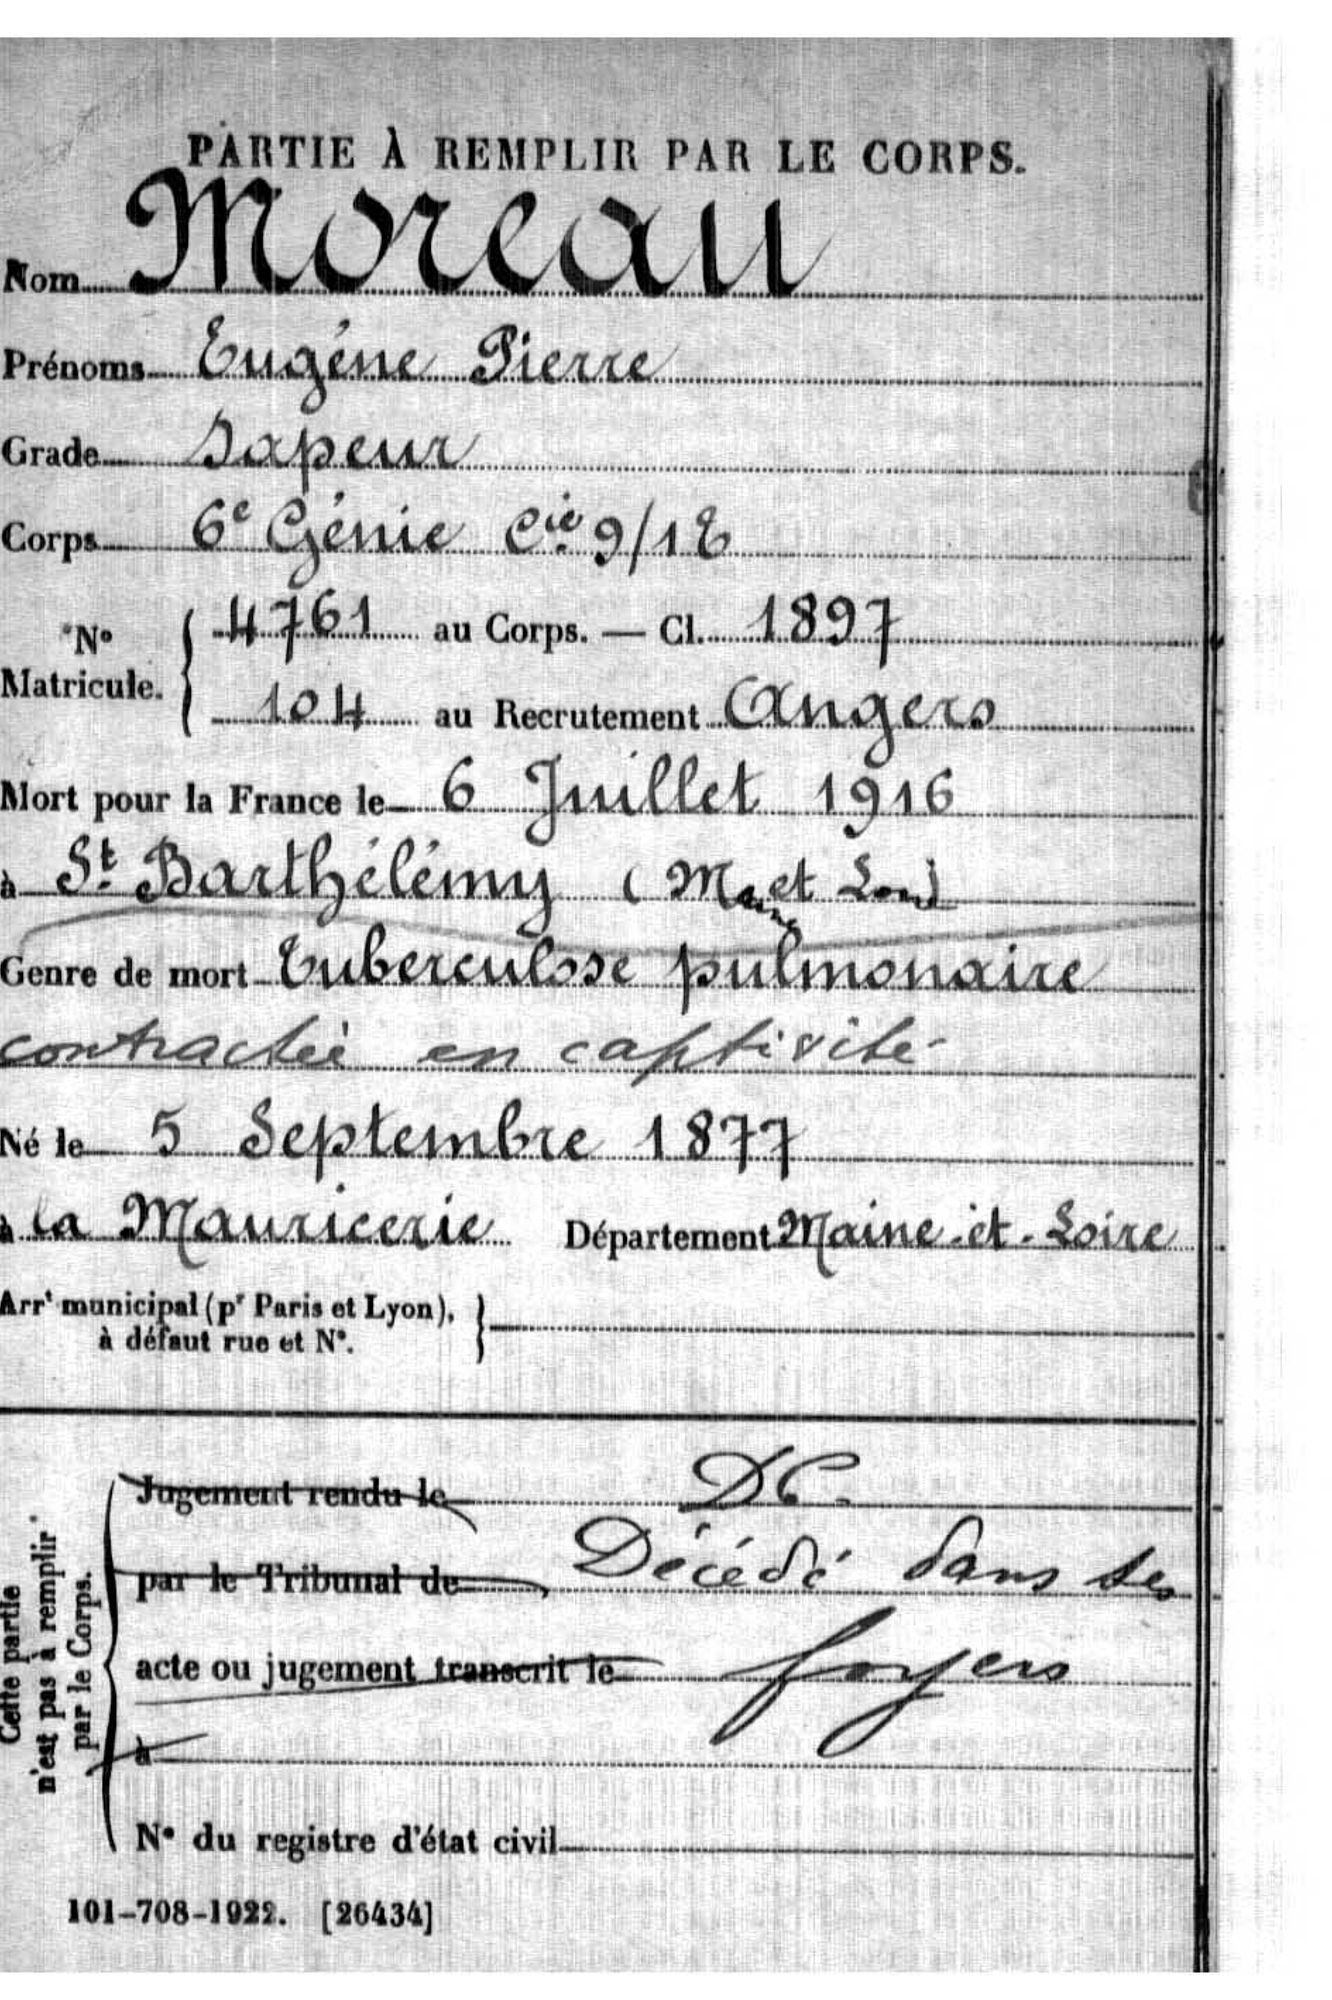 PARTIE À REMPLIR PAR LE CORPS.
Nom Moreau
Prénoms Eugéne Pierre
Grade Sapeur
Corps 6e Génie Cie 9/1
N° Matricule. 4761 au Corps. — Cl. 1897
104 au Recrutement Angers
Mort pour la France le 6 Juillet 1916
à St Barthélémy (Maine et Loire)
Genre de mort Tuberculose pulmonaire
contractée en captivité
Né le 5 Septembre 1877
à la Mauricerie Département Maine-et-Loire
Arrt municipal (pr Paris et Lyon),
à défaut rue et N°.
Cette partie
n'est pas à remplir
par le Corps.
Jugement rendu le
par le Tribunal de Décédé dans ses
acte ou jugement transcrit le foyers
à
N° du registre d'état civil
101-708-1922. [26434]